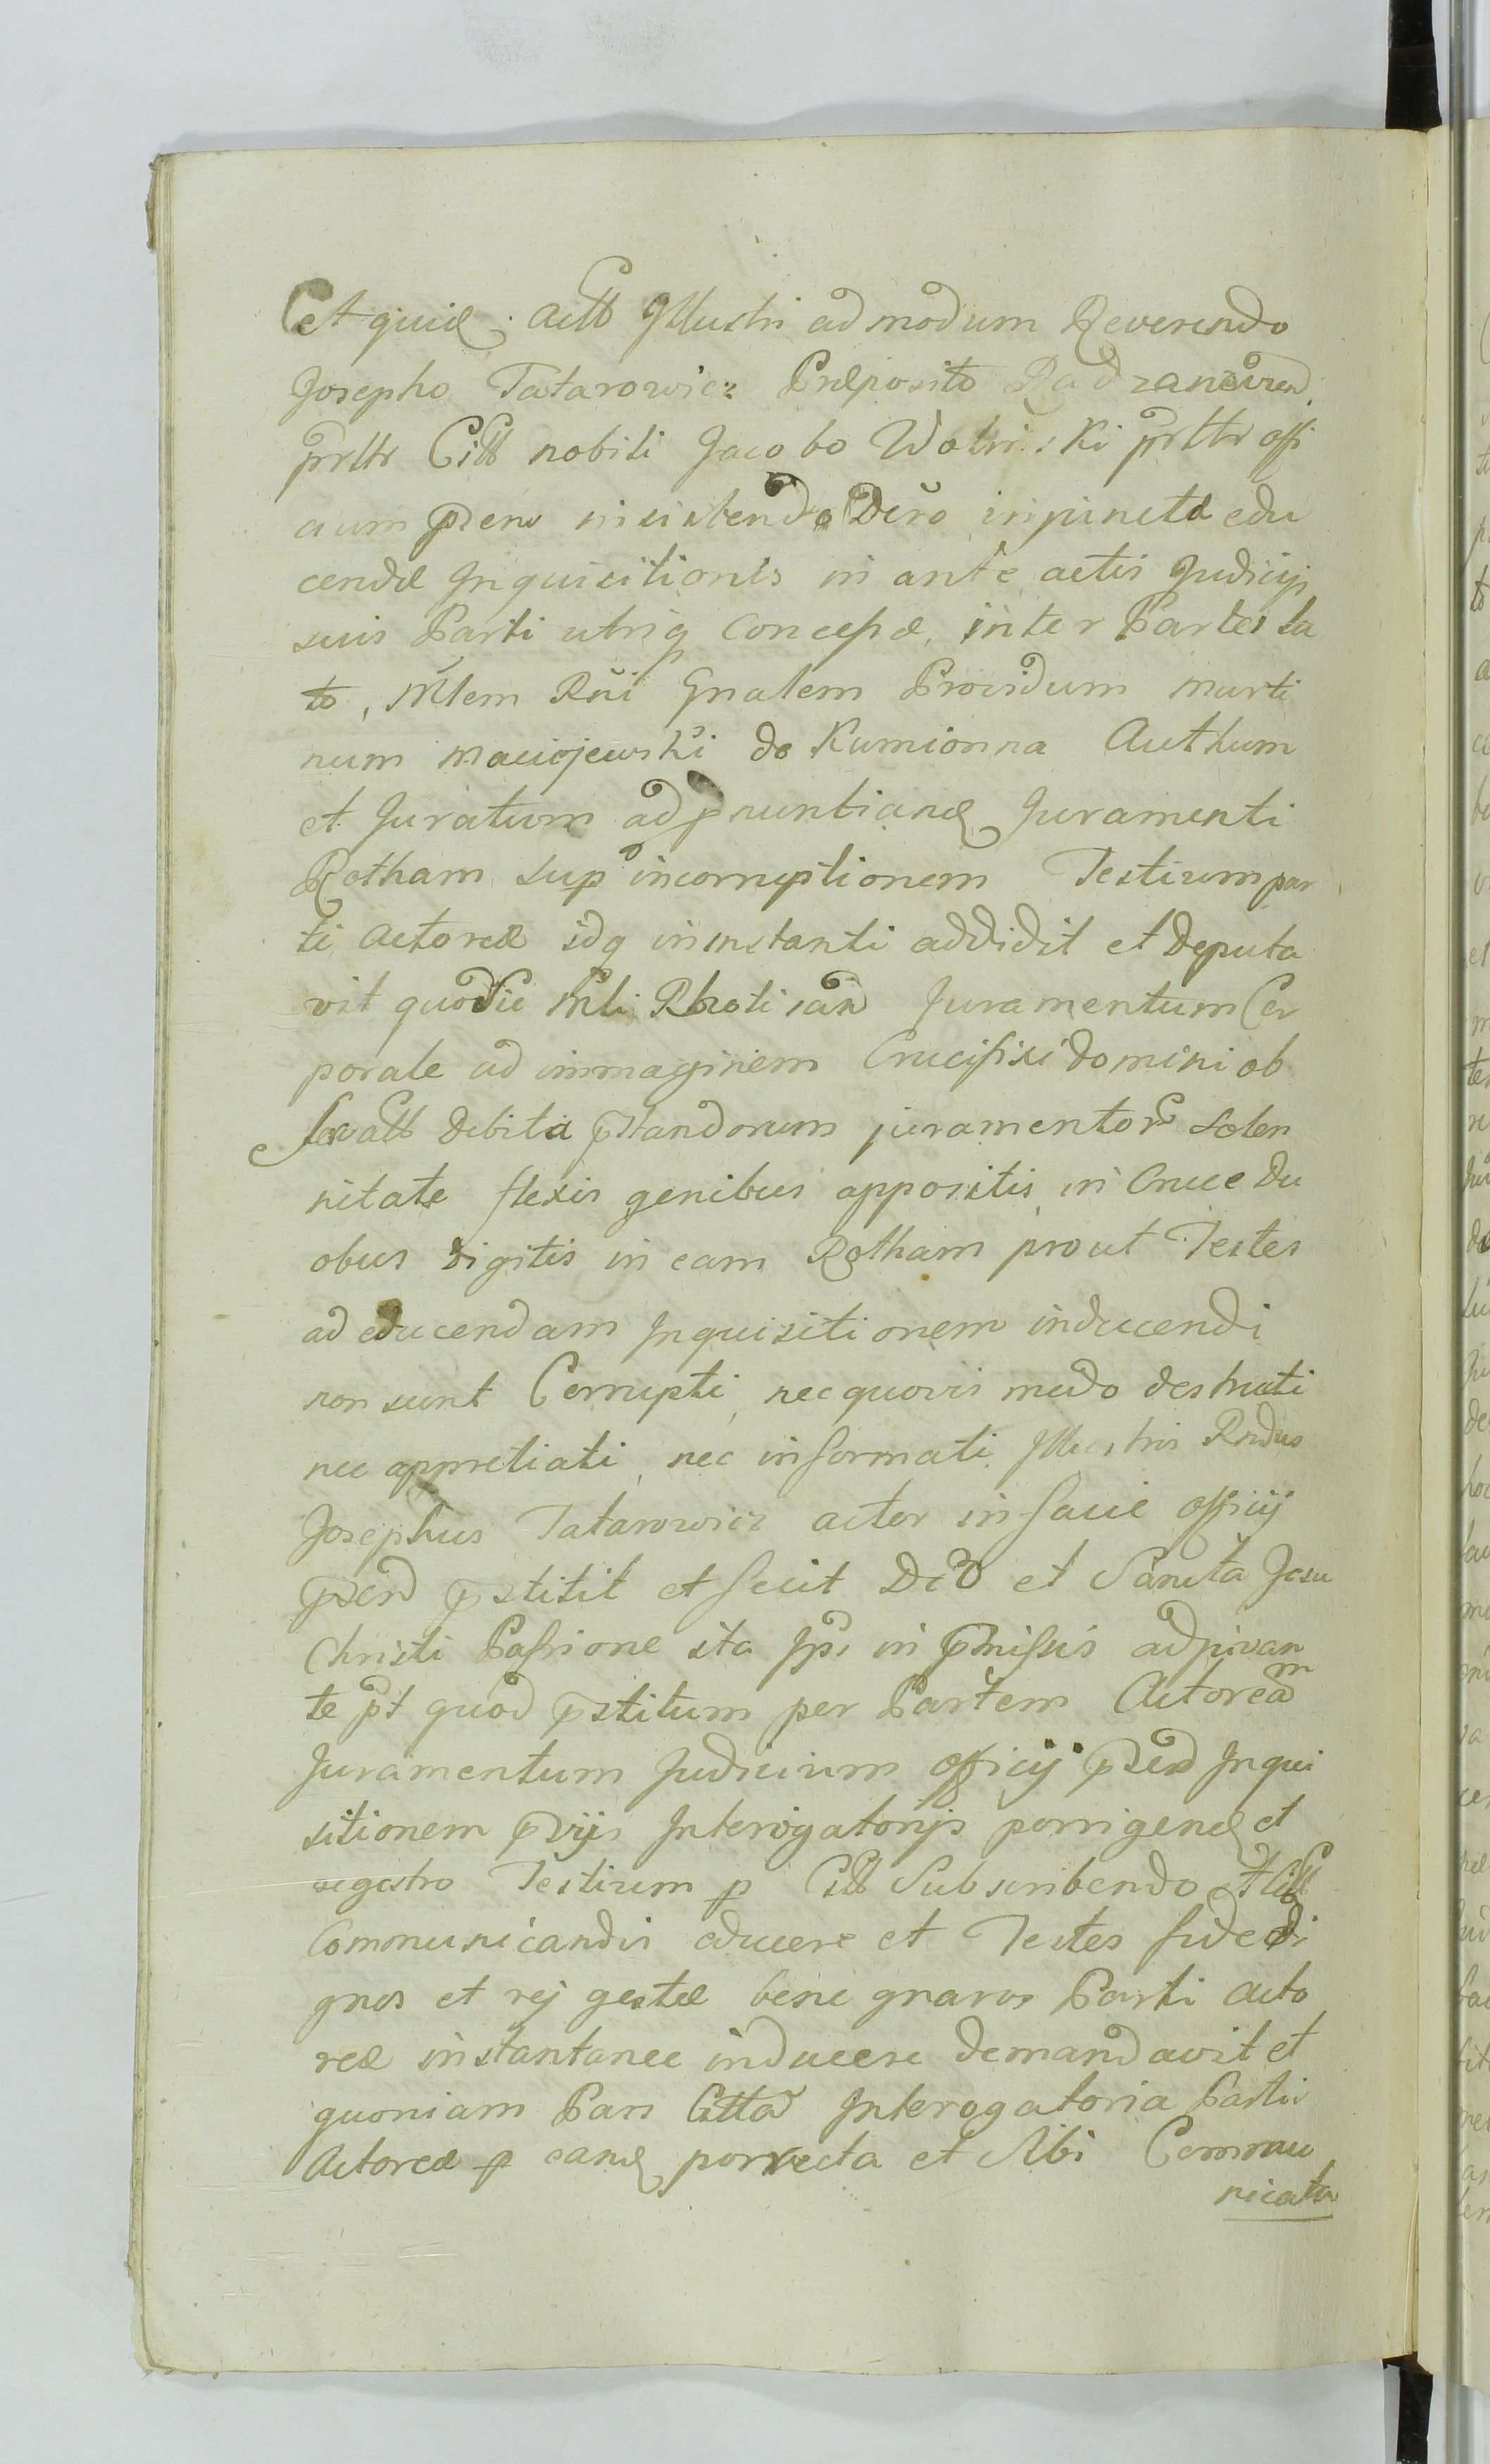 et quid. actt Illustri admodum Reverendo
Josepho Tatarowicz Præposito
prltr Citt nobili Jacobo Wolinski prltr offi
cium præns insistendo Dcro injunctæ edu
cendæ Inquisitionis in ante actis Judicijs
suis Parti utriq Concessæ, inter Partes la
to, Mlem Rni Gnalem Providum Marti
num Maciejewski de Kumionna Authum
et Juratum ad pnuntiand Juramenti
Rotham sup incorruptionem Testium par
ti actoreæ idq in instanti addidit et deputa
vit quo sic Mli Rhotisan Juramentum Cor
porale ad immaginem Crucifixi domini ob
servatt debita pstandorum juramentor Solen
nitate flexis genibus appositis in Cruce du
obus digitis in eam Rotham prout Testes
ad educendam Inquisitionem inducendi
non sunt Corrupti, nec quovis modo destructi
nec appretiati, nec informati, Illustris Rndus
Josephus Tatarowicz actor in facie officij
psend pstitit et fecit Deo et Sancta Jesu
Christi Passione ita Ipsi in pmissis adjuvan
te pt quod pstitum per Partem Actoream
Juramentum Judicium officij psend Inqui
sitionem pvijs Interogatorijs porrigend et
regestro Testium p Citt Subscribendo
Communicandis educere et Testes fidedi
gnos et rej gestæ bene gnaros Parti acto
reæ instantanee inducere demandavit et
quoniam Pars Citta Interogatoria Partis
Actoreæ p eand porrecta et Sibi Commu
nicata